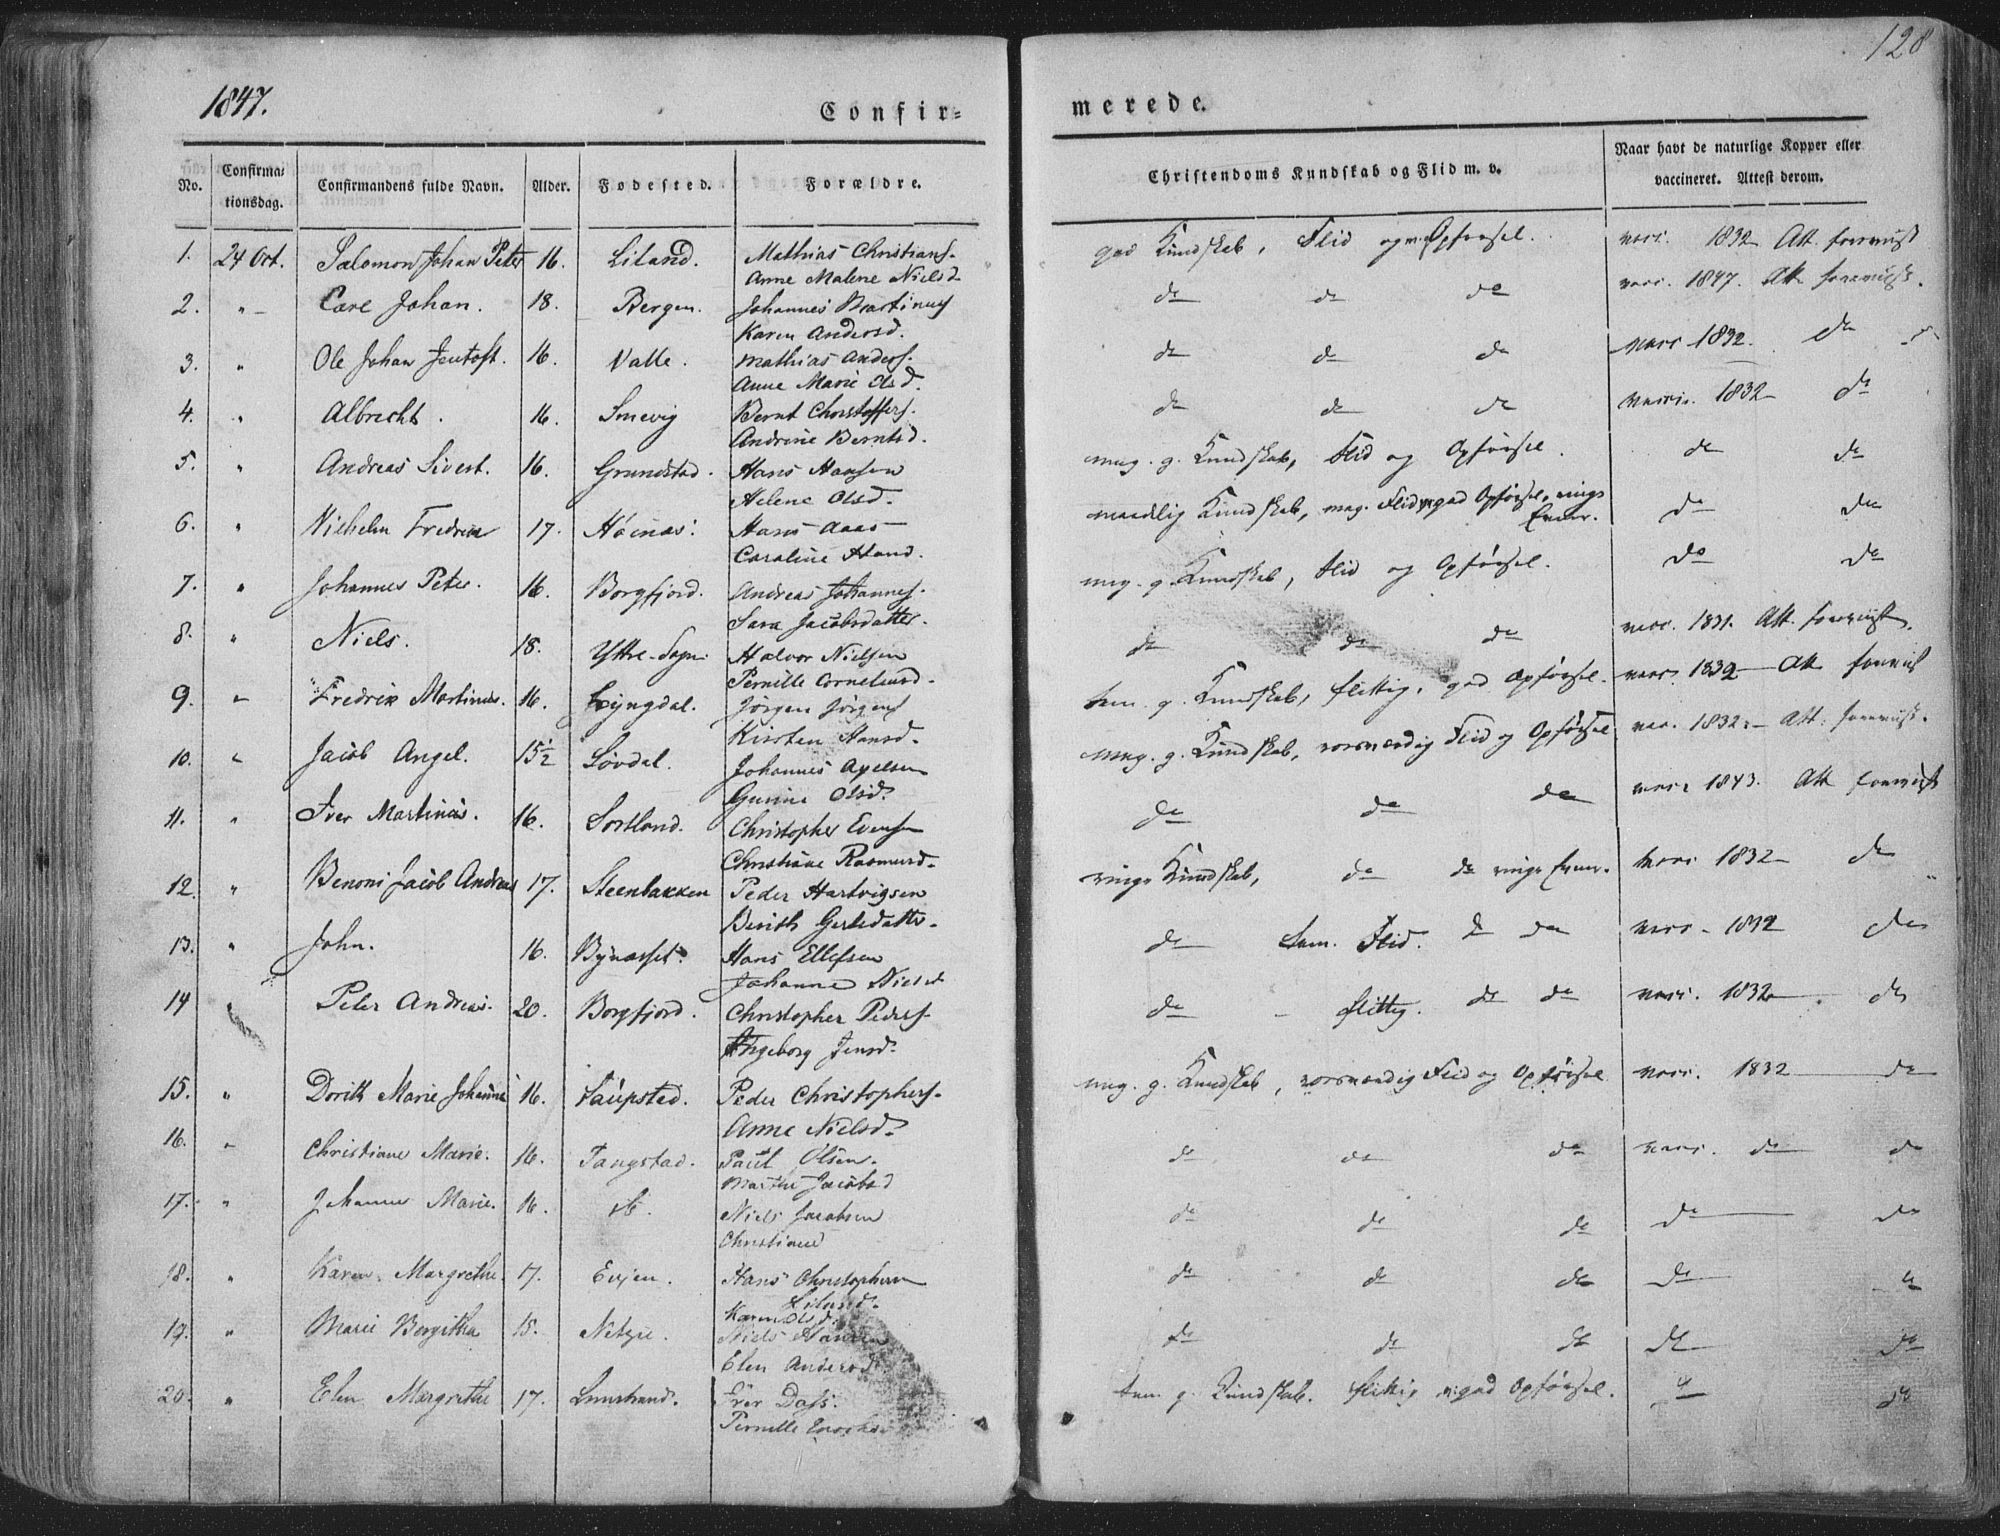 128
1847.
Confir=
merede.
No.
Confirma=
tionsdag.
Confirmandens fulde Navn.
Alder.
Fødested.
Forældre.
Christendoms Kundskab og Flid m. v.
Naar havt de naturlige Kopper eller
vaccineret. Attest derom.
1. 24 Oct. Salomon Johan Peter 16. Liland. Mathias Christians. god Kundskab, Flid og Opførsel. 1832 Att.
Anne Malene Nielsd
2. " Carl Johan. 18. Bergen. Johannes Martinus do do do 1847. Att.
Karen Andersd.
3. " Ole Johan Jentoft. 16. Valle. Mathias Anders. do do do 1832. do
Anne Marie Olsd.
4. " Albrecht. 16. Smevig Bernt Christoffers. do do do 1832 do
Andrine Berntsd.
5. " Andreas Sivert. 16. Grundstad. Hans Hansen mug. g. Kundskab, Flid og Opførsel. do do
Helene Olsd.
6. " Vilhelm Fredrik 17. Høinæs. Hans Aaas maadlig Kundskab, mag. Flid god Opførsel, ringe do do
Caroline Hansd. Evner.
7. " Johannes Peter. 16. Borgfjord. Andreas Johannes. mug. g. Kundskab, Flid og Opførsel. do do
Sara Jacobsdatter.
8. " Niels. 18. Yttre-Sogn. Halvor Nielsen do do do 1831. Att.
Pernille Corneliusd.
9. " Fredrik Martinus. 16. Lyngdal. Jørgen Jørgens tem. g. Kundskab, flittig, god Opførsel. 1832 Att
Kirsten Hansd.
10. " Jacob Angel. 15½ Løvdal. Johannes Axelsen mug. g. Kundskab, roesværdig Flid og Opførsel 1832. Att.
Gurine Olsd.
11. " Iver Martinus. 16. Sortland. Christopher Evensen do do do 1843. Att
Christiane Rasmusd.
12. " Benoni Jacob Andreas 17. Steenbakken Peder Hartvigsen ringe Kundskab, do do ringe Evner. 1832 do
Berith Gertsdatter.
13. " John. 16. Bynæsset. Hans Ellefsen do tem. Flid. do do 1832 do
Johanne Nielsd
14 " Peter Andreas. 20. Borgfjord. Christopher Peders. do flittig. do do 1832 do
Ingeborg Jensd.
15. " Dorith Marie Johanne 16. Saupstad. Peder Christophers. mug. g. Kundskab, roesværdig Flid og Opførsel 1832 do
Anne Nielsd.
16. " Christiane Marie. 16. Tangstad. Paul Olsen. do do do do do
Marthe Jacobsd
17. " Johanne Marie. 16. Niels Jacobsen do do do do do
Christiane
18. " Karen Margrethe. 17. Evjen. Hans Christophersen do do do do
Liland.
Karen Olsd.
19. " Maria Bergitha 15. Niels Hansen do do do do do
Elen Andersd.
20. " Elen Margrethe 17. Iver Dass. tem. g. Kundskab. flittig god Opførsel. do
Pernille